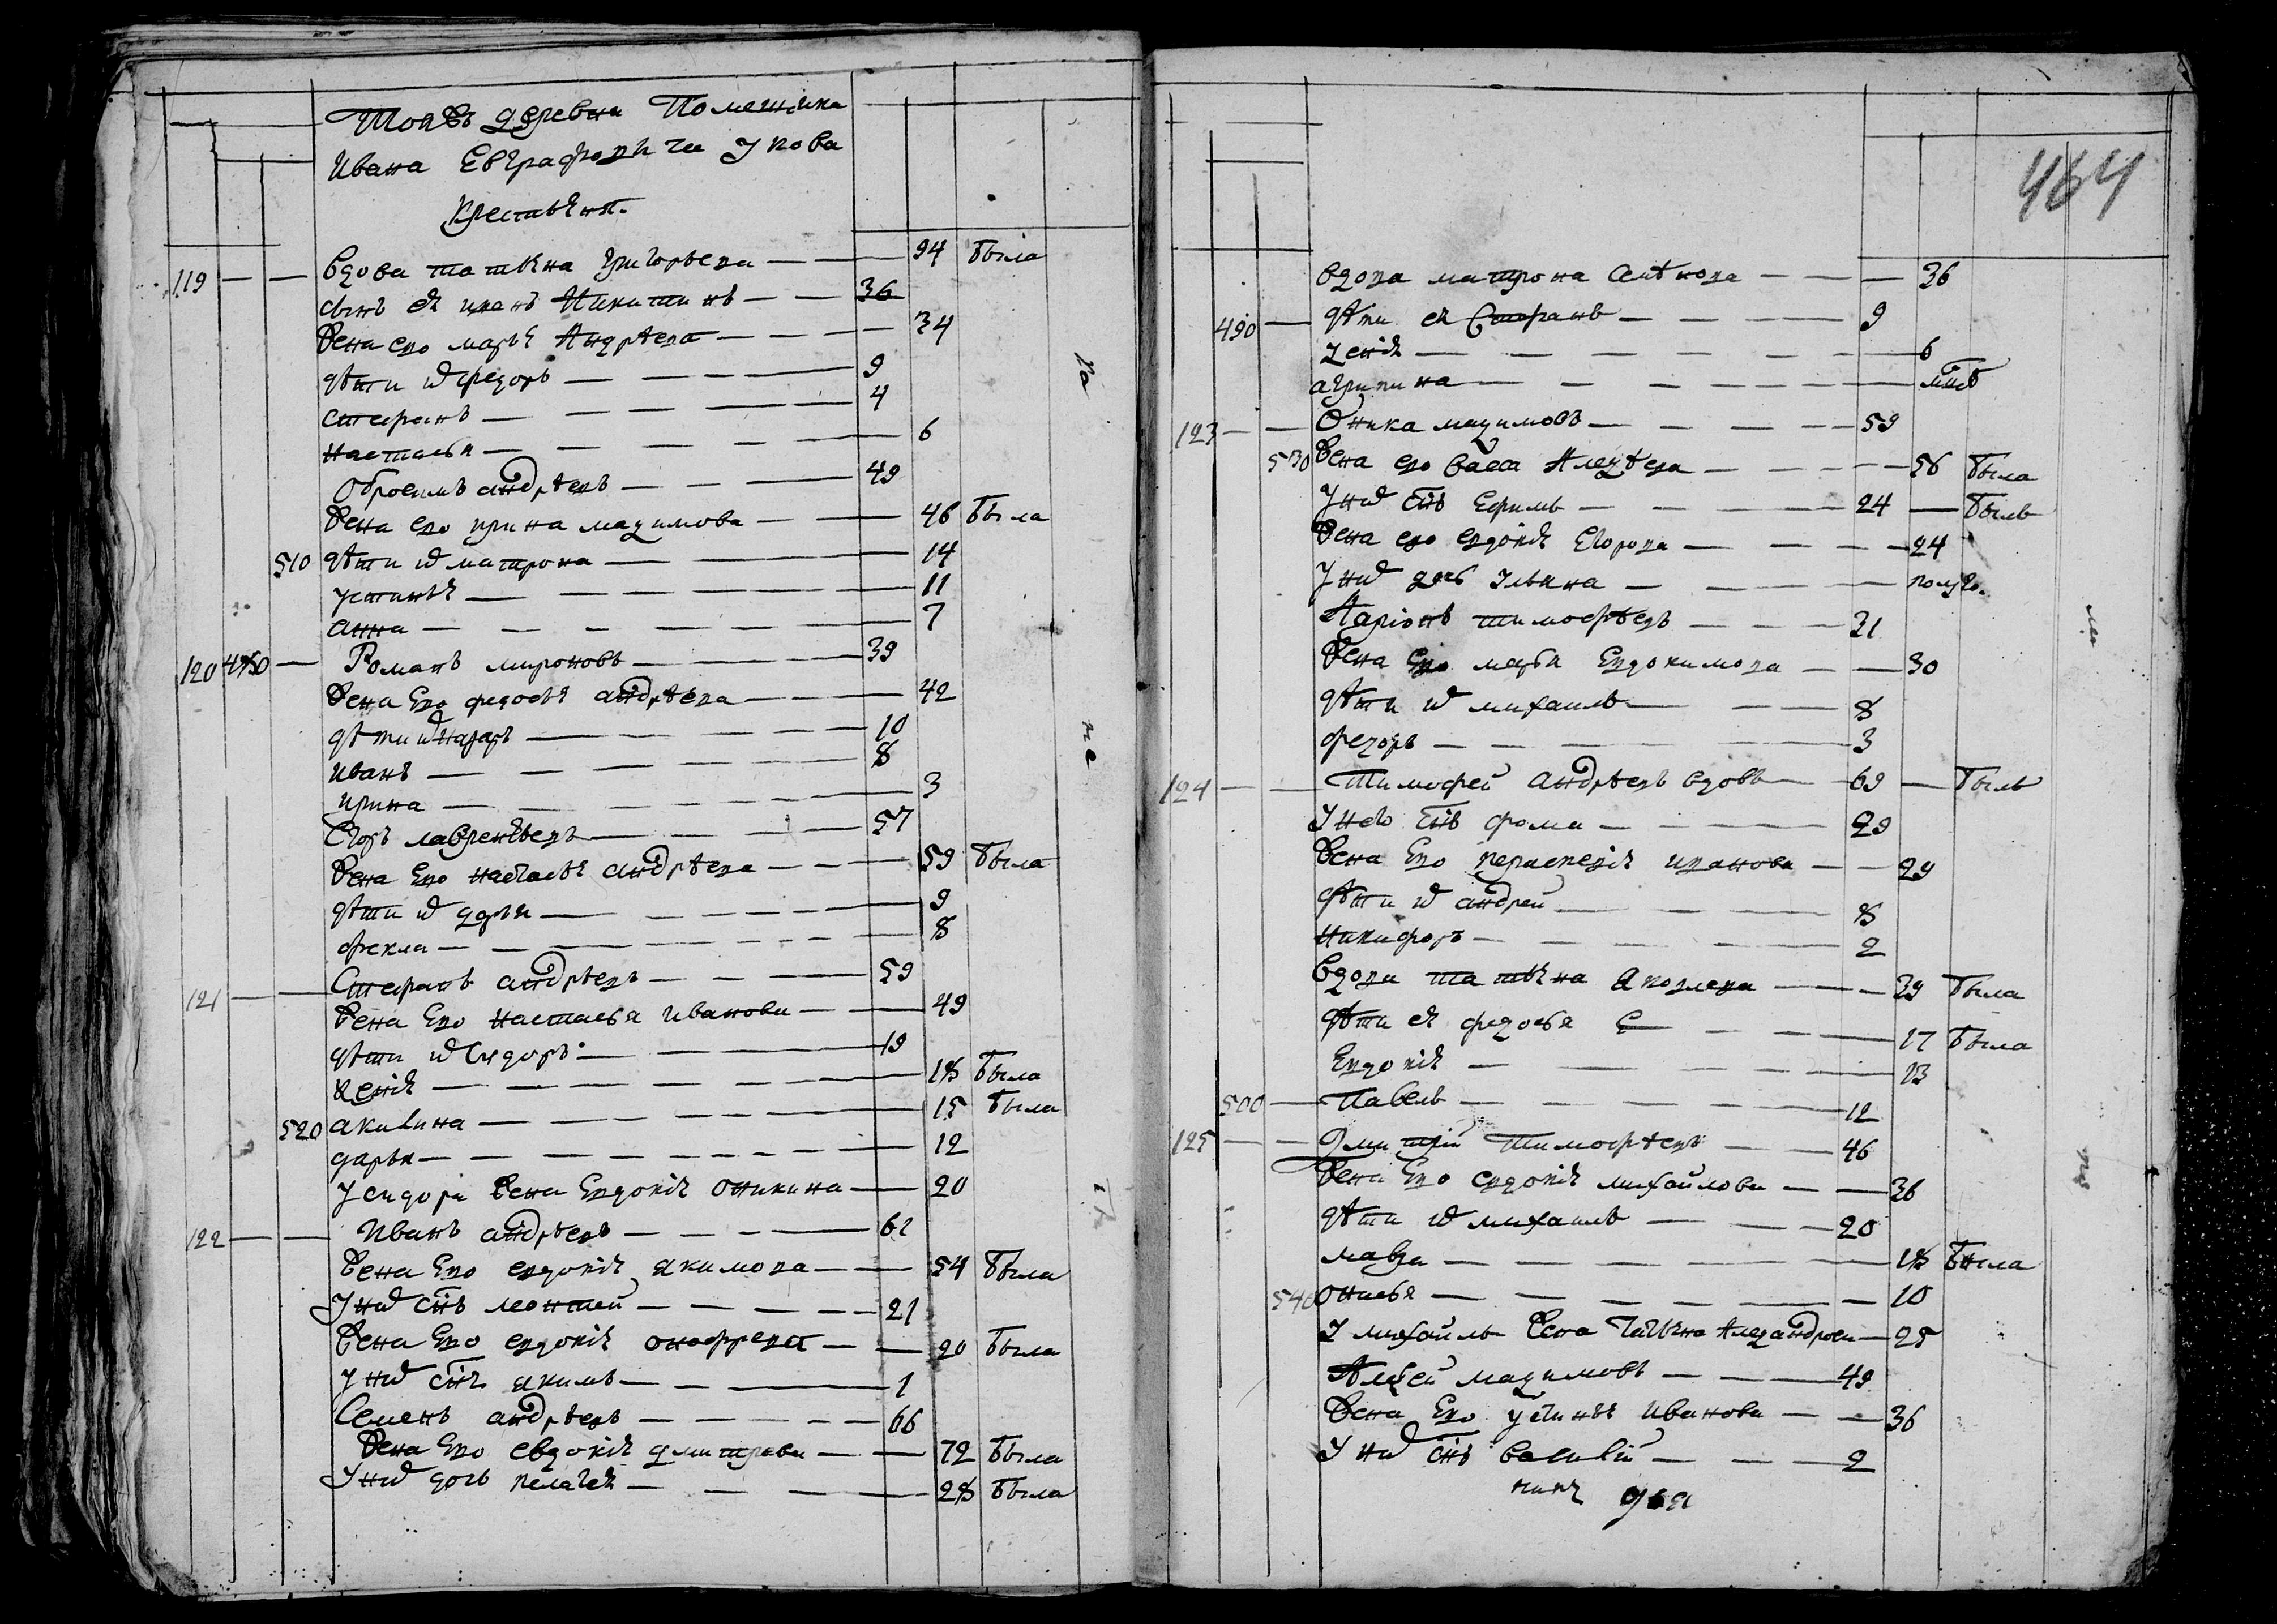 Тояжъ деревни Помещика
Ивана Евграфовича Укова
Крестьянъ
119 — — Вдова татьяна григорьева — — 94 была
сынъ ея иванъ Никитинъ — — 36
Жена ево марья Андрѣева — — — 34
дѣти их федоръ — — — — 9
стефанъ — — — — 4
настасья — — — — — 6
Обросимъ андрѣевъ — — — 49
Жена ево ирина мазимова — — 46 была
510 дѣти их матрона — — — 14
устинья — — — — — 11
анна — — — — — — 7
120 480 — Романъ мироновъ — — — 39
Жена Ево федосья андрѣева — — — 42
дѣти их назаръ — — — — 10
иванъ — — — — — 8
ирина — — — — — — 3
Егоръ лаврентьевъ — — — — 57
Жена Ево настасья андрѣева — — — 59 была
дѣти их дарья — — — — — 9
фекла — — — — — — — 8
121 — — Стефанъ андрѣевъ — — — 59
Жена Ево настасья иванова — — 49
дѣти их Сидоръ — — — — 19
Ксенія — — — — — — 18 была
520 акилина — — — — — — 15 была
дарья — — — — — — — 12
У сидора Жена Евдокія оникина — 20
122 — — Иванъ андрѣевъ — — — 61
Жена Ево евдокія якимова — — 54 была
У них снъ леонтей — — — — 21
Жена Ево евдокія онофрева — — 20 была
У них снъ якимъ — — — 1
Семенъ андрѣевъ — — — — 66
Жена Ево евдокія дмитрева — — 72 была
У них дочь пелагея — — — — 28 была
464
вдова матрона Семѣнова — — — 36
490 — дѣти ея Стефанъ — — — 9
Ксенія — — — — — — — 6
агрипина — — — — — —
123 — — Оника мазимовъ — — — — 59
530 Жена ево васса Алеѯѣева — — — — 56 была
У них снъ Ефимъ — — — — 24 — былъ
Жена ево евдокія Егорова — — — — 24
У них дочь Ульяна — — — — полуго.
Ларіонъ тимофѣевъ — — — 31
Жена Ево марья Евдокимова — — 30
дѣти их михаилъ — — — 8
федоръ — — — — 3
124 — — Тимофей андрѣевъ вдовъ — 69 — былъ
У него снъ фома — — — — 29
Жена Ево пераскевія иванова — — 29
дѣти их андрей — — — 8
никифоръ — — — — 2
Вдова татьяна Яковлева — — — 39 была
дѣти ея федосья — — — — 17 была
Евдокія — — — — — 13
500 — Павелъ — — — — — 12
125 — — Дмитрій Тимофѣевъ — — 46
Жена Ево евдокія михайлова — — 36
дѣти их михаилъ — — — 20
мавра — — — — — — 18 была
540 онисья — — — — — — 10
У михайлы Жена Татьяна Алеѯандрова — 25
Алеѯей мазимовъ — — — 49
Жена Ево устинья Иванова — — 36
У них снъ василій — — — 2